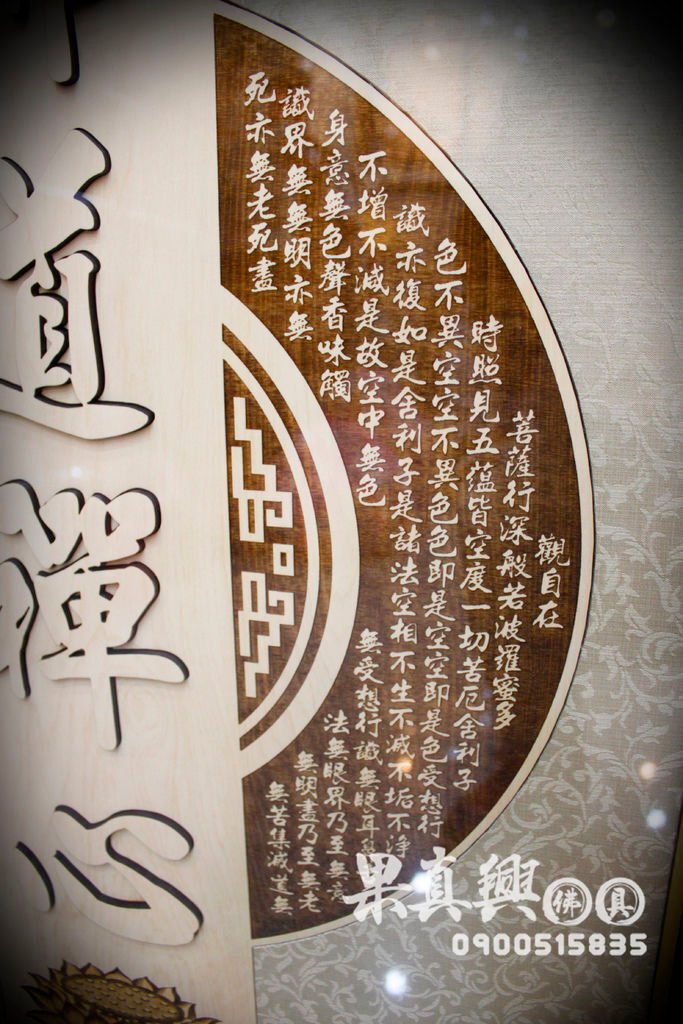 觀自在
菩薩行深般若波羅蜜多
時照見五蘊皆空度一切苦厄舍利子
色不異空空不異色色即是空空即是色受想行
識亦復如是舍利子是諸法空相不生不滅不垢不淨
不增不減是故空中無色
無受想行識無眼耳
身意無色聲香味觸
法無眼界乃至無意
識界無無明亦無
無明盡乃至無老
死亦無老死盡
無苦集滅道無
道禪心
果真興佛具
0900515835